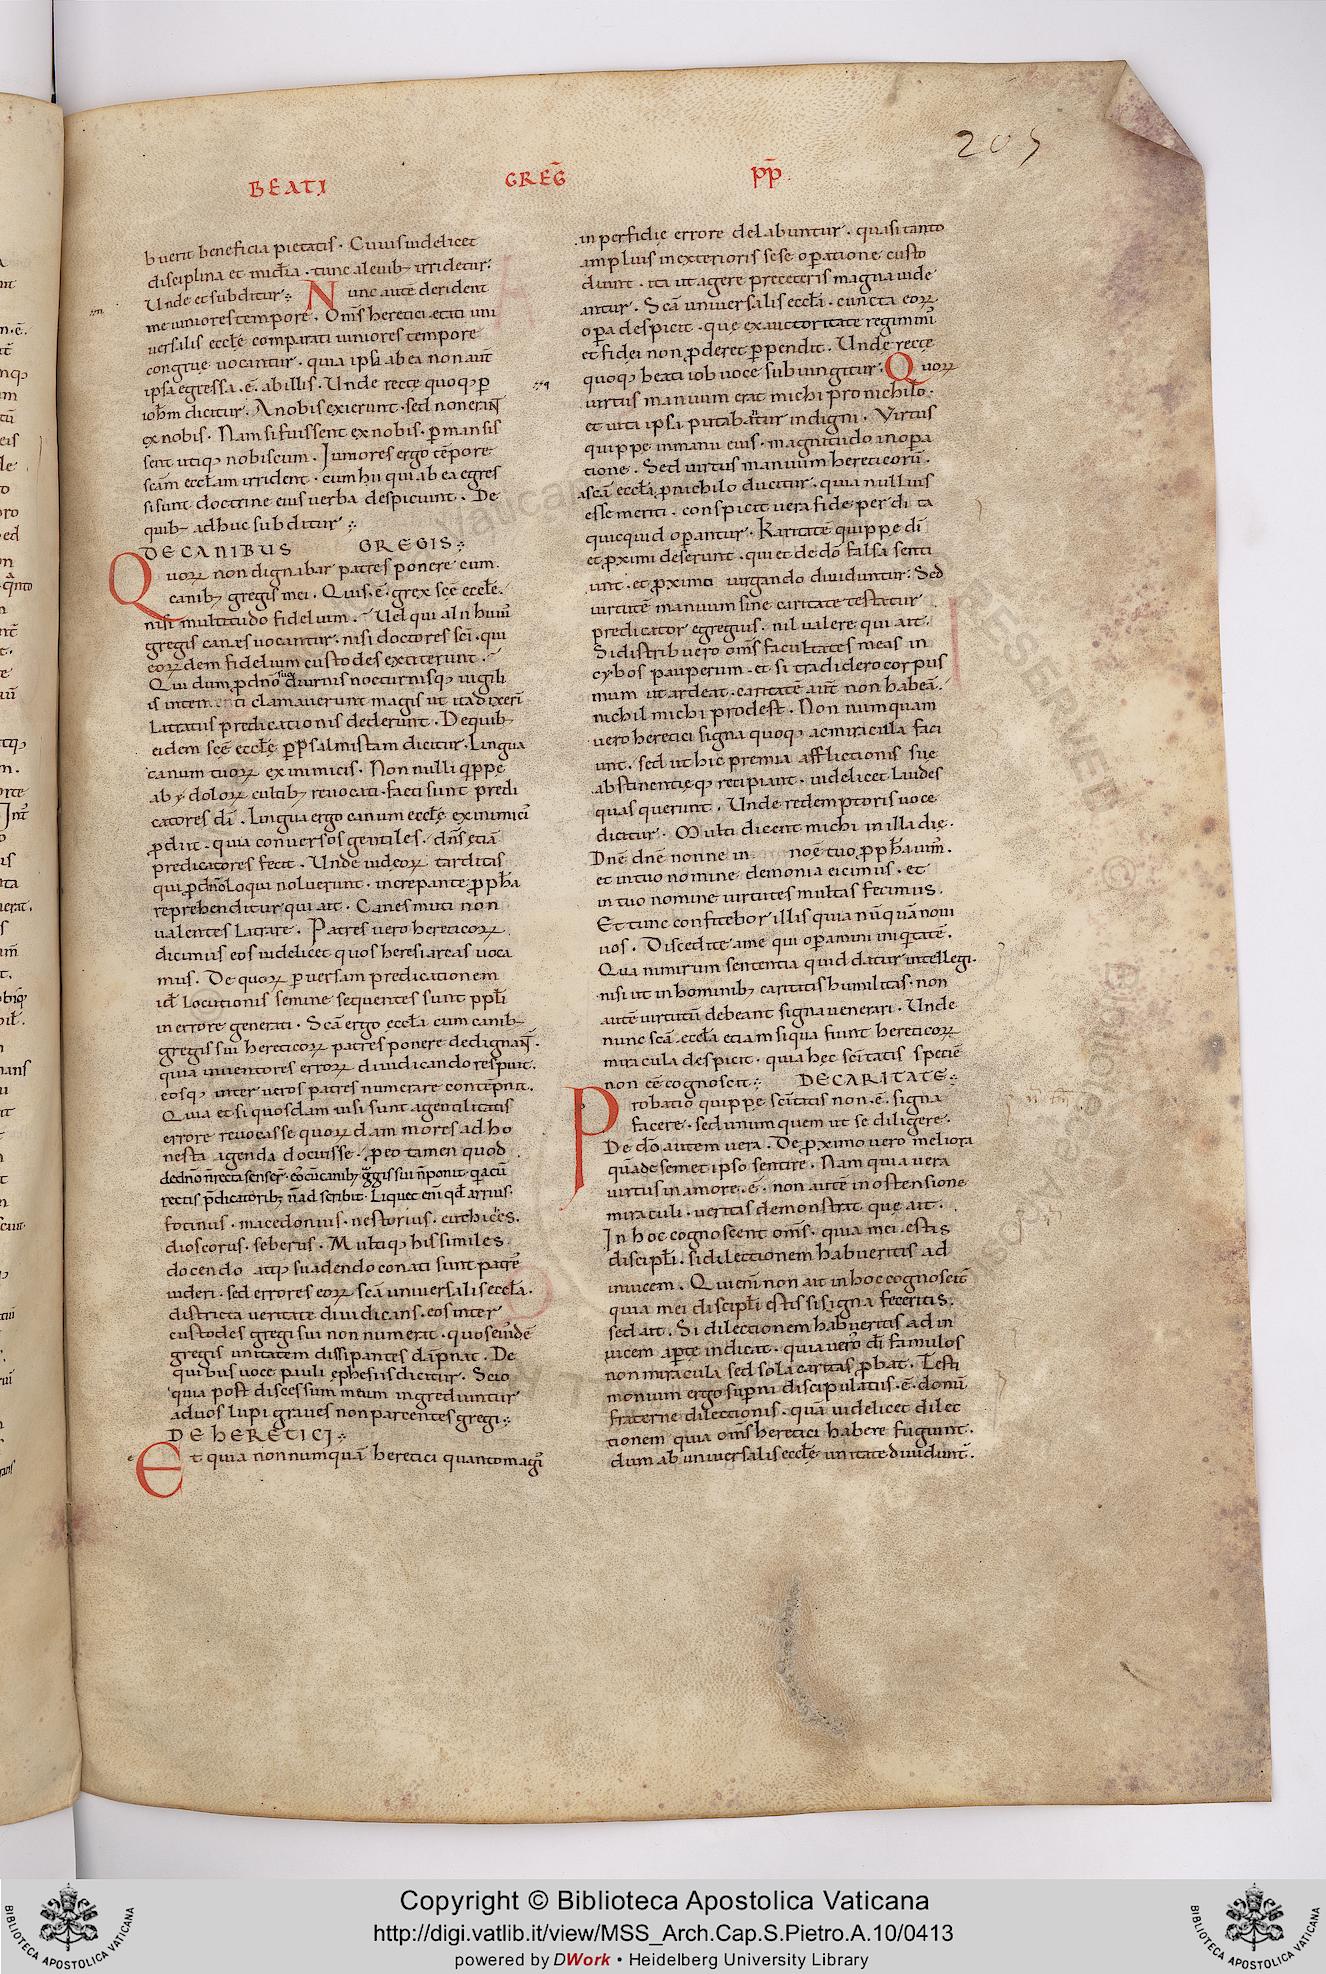 205
BEATI GREḠ PP̄
buerit beneficia pietatis · Cuius uidelicet
disciplina et mid̄ia · tunc a leuib; irridetur ·
Unde et subditur : Nunc autē derident
me iuniores tempore . Om̄s heretici etati uni
uersalis eccłę comparati iuniores tempore
congrue uocantur · quia ipsi ab ea non aūt
ipsa egressa · ē · ab illis · Unde recte quoq; p
ioh̄m dicitur · A nobis exierunt · sed non eran̄t
ex nobis · Nam si fuissent ex nobis · pmansis
sent utiq; nobiscum · Iuniores ergo tēpore
scām eccłam irrident · cum hii qui ab ea egres
si sunt doctrine eius uerba despiciunt · De
quib; adhuc subditur :
DE CANIBUS GREGIS :
Quoꝝ non dignabar patres ponere cum
canib; gregis mei · Quis · ē · grex scē eccłę ·
nisi multitudo fidelium · Uel qui alii hui᷒
gregis canes uocantur · nisi doctores sc̄i · qui
eoꝝdem fidelium custodes exciterunt ·
Qui dum p dn̄o suo diurnis nocturnisq; uigili
is intenti clamauerunt magis ut ita dixerī
Latratus predicationis dederunt · De quib;
eidem scē eccłę pp psalmistam dicitur · Lingua
canum tuoꝝ ex inimicis · Non nulli q̄ppe
ab ydoloꝝ cultib; reuocati · facti sunt predi
catores dī · Lingua ergo canum eccłę ex inimici᷒
ꝓdiit · quia conuersos gentiles · dn̄s etiā
predicatores fecit · Unde iudeoꝝ tarditas
qui ꝓ dn̄o loqui noluerunt · increpante ꝓph̄a
reprehenditur qui ait · Canes muti non
ualentes Latrare · Patres uero hereticoꝝ
dicimus eos uidelicet quos heresiarcas uoca
mus · De quoꝝ puersam predicationem
id̄ Locutionis semine sequentes sunt ppłi
in errore generati · Scā ergo eccła cum canib;
gregis sui hereticoꝝ patres ponere dedignat̄ ·
quia inuentores erroꝝ diiudicando respuit ·
eosq; inter ueros patres numerare contēpnit ·
Quia et si quosdam uisi sunt a gentilitatis
errore reuocasse quoꝝdam mores ad ho
nesta agenda docuisse · ꝓeo tamen quod
de dn̄o n̄ recta senser̄ · eos cū canib; g̊gis sui n̄ ponit · q̄a cū
rectis p̄dicatorib; n̄ adscribit · Liquet enī qd̄ arrius ·
fotinus · macedonius · nestorius · euthices ·
dioscorus · seberus · Multiq; his similes
docendo atq; suadendo conati sunt patre᷒
uideri · sed errores eoꝝ scā uniuersalis eccła ·
districta ueritate diiudicans · eos inter
custodes gregi sui non numerat · quos eiūdē
gregis unitatem dissipantes dāpnat · De
quibus uoce pauli ephesiis dicitur · Scio
quia post discessum meum ingrediuntur
ad uos lupi graues non parcentes gregi :
DE HERETICI :
Et quia nonnumquā heretici quanto magi᷒
in perfidię errore delabuntur · quasi tanto
amplius in exterioris sese opatione custo
diunt · ita ut agere pre ceteris magna uide
antur · Scā uniuersalis eccła · cuncta eoꝝ
opa despicit · quę ex auctoritate regiminū
et fidei non ꝓderet ppendit · Unde recte
quoq; beati iob uoce subiungitur · Quoꝝ
uirtus manuum erat michi pro nichilo ·
et uita ipsi putabantur indigni · Virtus
quippe in manu eius · magnitudo in opa
tione · Sed uirtus manuum hereticorū ·
a scā eccła ꝓ nichilo ducitur · quia nullius
esse meriti · conspicit uera fide perdita
quicquid opantur · Karitatē quippe dī
et ꝓximi deserunt · qui et de dō falsa senti
unt · et ꝓximi iurgando diuiduntur · Sed
uirtutē manuum sine caritate testatur
predicator egregius · nil ualere qui ait ·
Si distribuero om̄s facultates meas in
cybos pauperum · et si tradidero corpus
mum ut ardeat · caritatē aūt non habeā ·
nichil michi prodest · Non numquam
uero heretici signa quoq; ac miracula faci
unt · sed ut hic premia afflictionis sue
abstinentieq; recipiant · uidelicet Laudes
quas querunt · Unde redemptoris uoce
dicitur · Multi dicent michi in illa die ·
Dn̄e dn̄e nonne in noe tuo ꝓph̄auim᷒ ·
et in tuo nomine demonia eicimus · et
in tuo nomine uirtutes multas fecimus ·
Et tunc confitebor illis quia nūquā noui
uos · Discedite a me qui opamini iniq̇tatē ·
Qua nimirum sententia quid datur intellegi ·
nisi ut in hominib; caritatis humilitas · non
autē uirtutū debeant signa uenerari · Unde
nunc scā eccła etiam siqua fiunt hereticoꝝ
miracula despicit · quia hęc sc̄itatis speciē
non eē cognoscit : DE CARITATE :
Probatio quippe sc̄itatis non · ē · signa
facere · sed unumquem ut se diligere ·
De dō autem uera · De ꝓximo uero meliora
quā de semet ipso sentire · Nam quia uera
uirtus in amore · ē · non autē in ostensione
miraculi · ueritas demonstrat quę ait ·
In hoc cognoscent om̄s · quia mei estis
discipłi · si dilectionem habueritis ad
inuicem · Qui enī non ait in hoc cognoscet̄
quia mei discipłi estis si signa feceritis ·
sed ait · Si dilectionem habueritis ad in
uicem apte indicat · quia uero dī famulos
non miracula sed sola caritas ꝓbat · Testi
monium ergo supni discipulatus · ē · donū
fraterne dilectionis · quā uidelicet dilec
tionem quia om̄s heretici habere fugiunt ·
dum ab uniuersalis eccłę unitate diuidunt̄ ·
Copyright © Biblioteca Apostolica Vaticana
http://digi.vatlib.it/view/MSS_Arch.Cap.S.Pietro.A.10/0413
powered by DWork • Heidelberg University Library
BIBLIOTECA APOSTOLICA VATICANA
BIBLIOTECA APOSTOLICA VATICANA